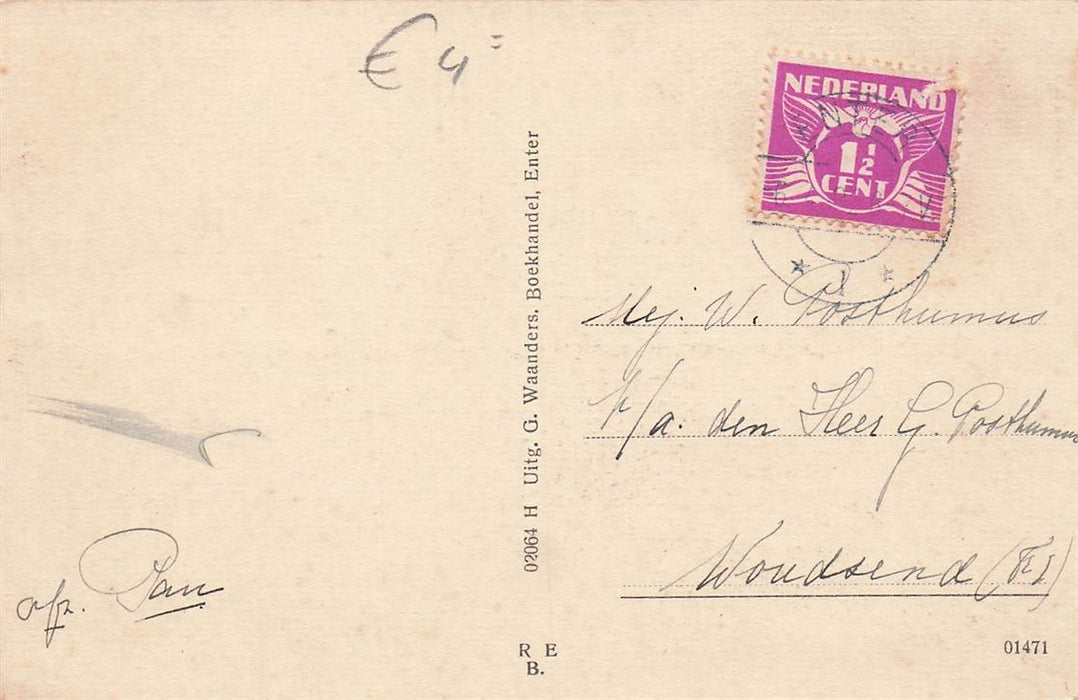 € 4=
NEDERLAND
1½
CENT
* 1 *
02064 H Uitg. G. Waanders, Boekhandel, Enter
Mej. W. Posthumus
p/a. den Heer G. Posthumus
Woudsend (Fr)
afz. Jan
R E
B.
01471